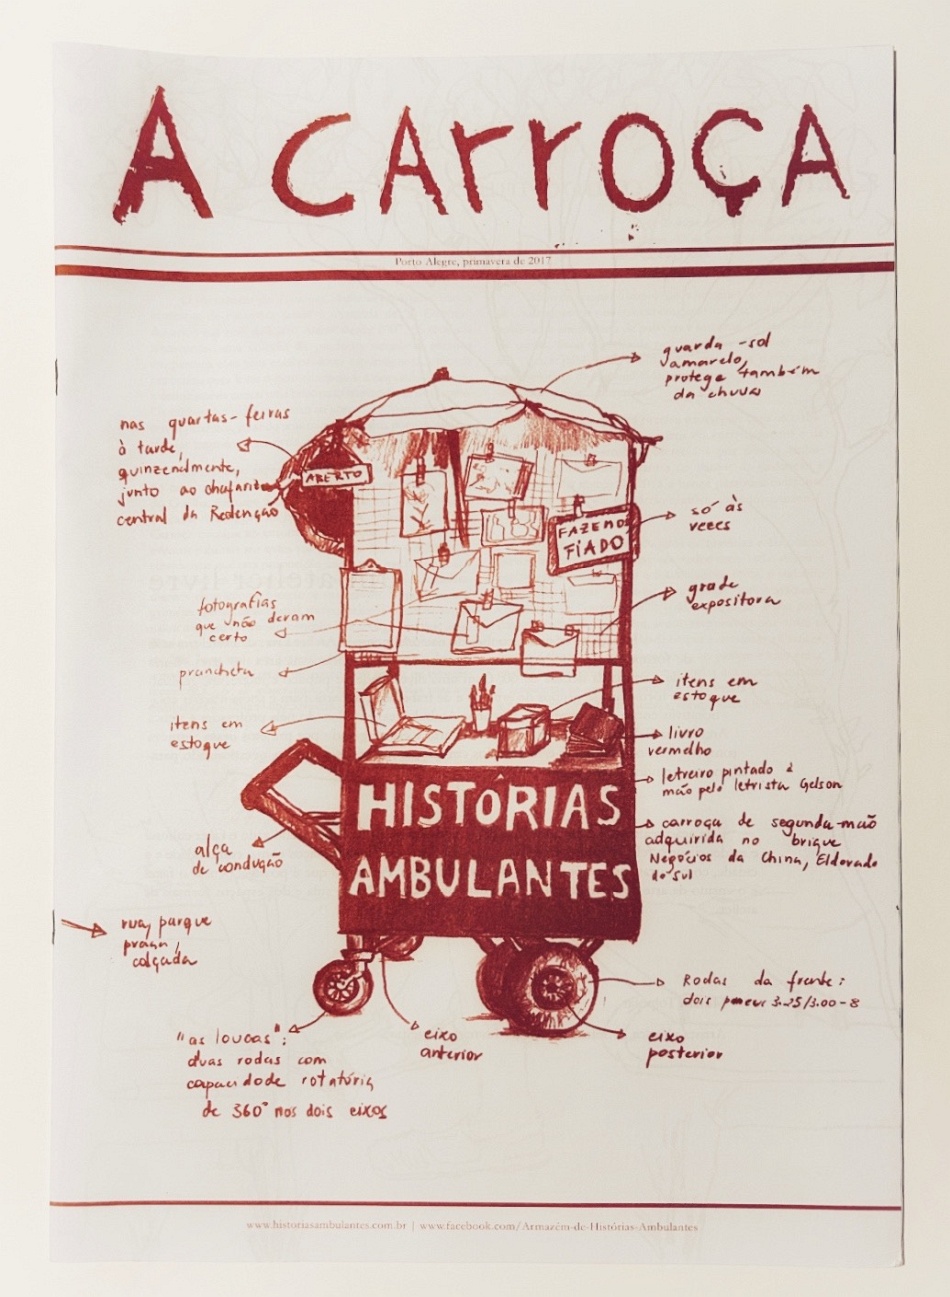 A CARROÇA
Porto Alegre, primavera de 2017
guarda-sol
amarelo,
protege também
da chuva
nas quartas-feiras
à tarde,
quinzenalmente,
junto ao chafariz
central da Redenção
ABERTO
FAZEMOS
FIADO
só às
vezes
grade
expositora
fotografias
que não deram
certo
prancheta
itens em
estoque
itens em
estoque
livro
vermelho
letreiro pintado à
mão pelo letrista Gelson
carroça de segunda-mão
adquirida no brique
Negócios da China, Eldorado
do Sul
HISTÓRIAS
AMBULANTES
alça
de condução
rua, parque
praça,
calçada
Rodas da frente:
dois pneus 3.25/3.00-8
"as loucas":
duas rodas com
capacidade rotatória
de 360° nos dois eixos
eixo
anterior
eixo
posterior
www.historiasambulantes.com.br | www.facebook.com/Armazém-de-Histórias-Ambulantes